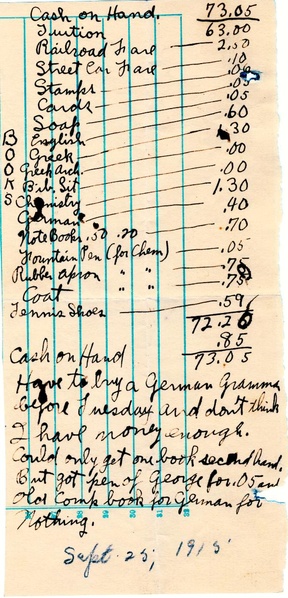 Cash on Hand. 73.05
Tuition 63.00
Railroad Fare 2.50
Street Car Fare .10
Stamps
Cards .05
Soap .60
BOOKS
English .30
Greek .00
Greek Arch. .00
Bib. Sit 1.30
Chemistry .40
German
Note Books .50 .20 .70
Fountain Pen (for Chem) .05
Rubber apron " " .75
Coat " " .75
Tennis Shoes .59
72.20
.85
Cash on Hand 73.05
Have to buy a German Grammar
before Tuesday and don't think
I have money enough.
Could only get one book second hand.
But got pen of George for .05 and
old Comp book for German for
nothing.
Sept. 25, 1915